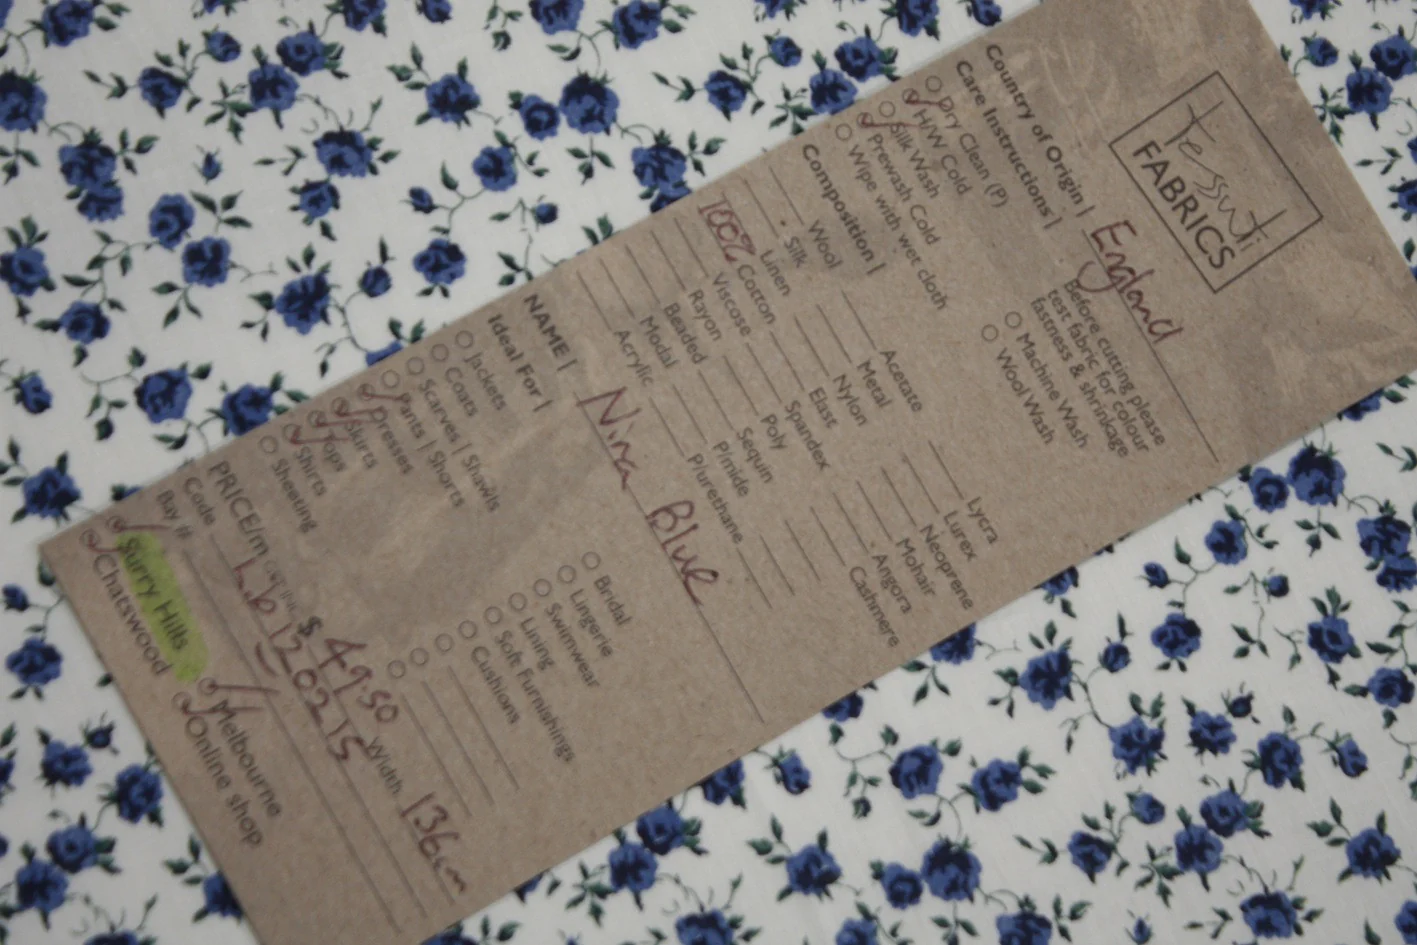 Tessuti
FABRICS
Country of Origin | England
Care Instructions | Before cutting please
test fabric for colour
fastness & shrinkage
Dry Clean (P)
H/W Cold
Silk Wash
Prewash Cold
Wipe with wet cloth
Machine Wash
Wool Wash
Composition |
Wool Acetate Lycra
Silk Metal Lurex
Linen Nylon Neoprene
100% Cotton Elast Mohair
Viscose Spandex Angora
Rayon Poly Cashmere
Beaded Sequin
Modal P/mide
Acrylic P/urethane
NAME | Nina Blue
Ideal For |
Jackets Bridal
Coats Lingerie
Scarves | Shawls Swimwear
Pants | Shorts Lining
Dresses Soft Furnishings
Skirts Cushions
Tops
Shirts
Sheeting
PRICE/m $ 49.50 Width 136cm
Code 120215
Bay #
Surry Hills Melbourne
Chatswood Online shop